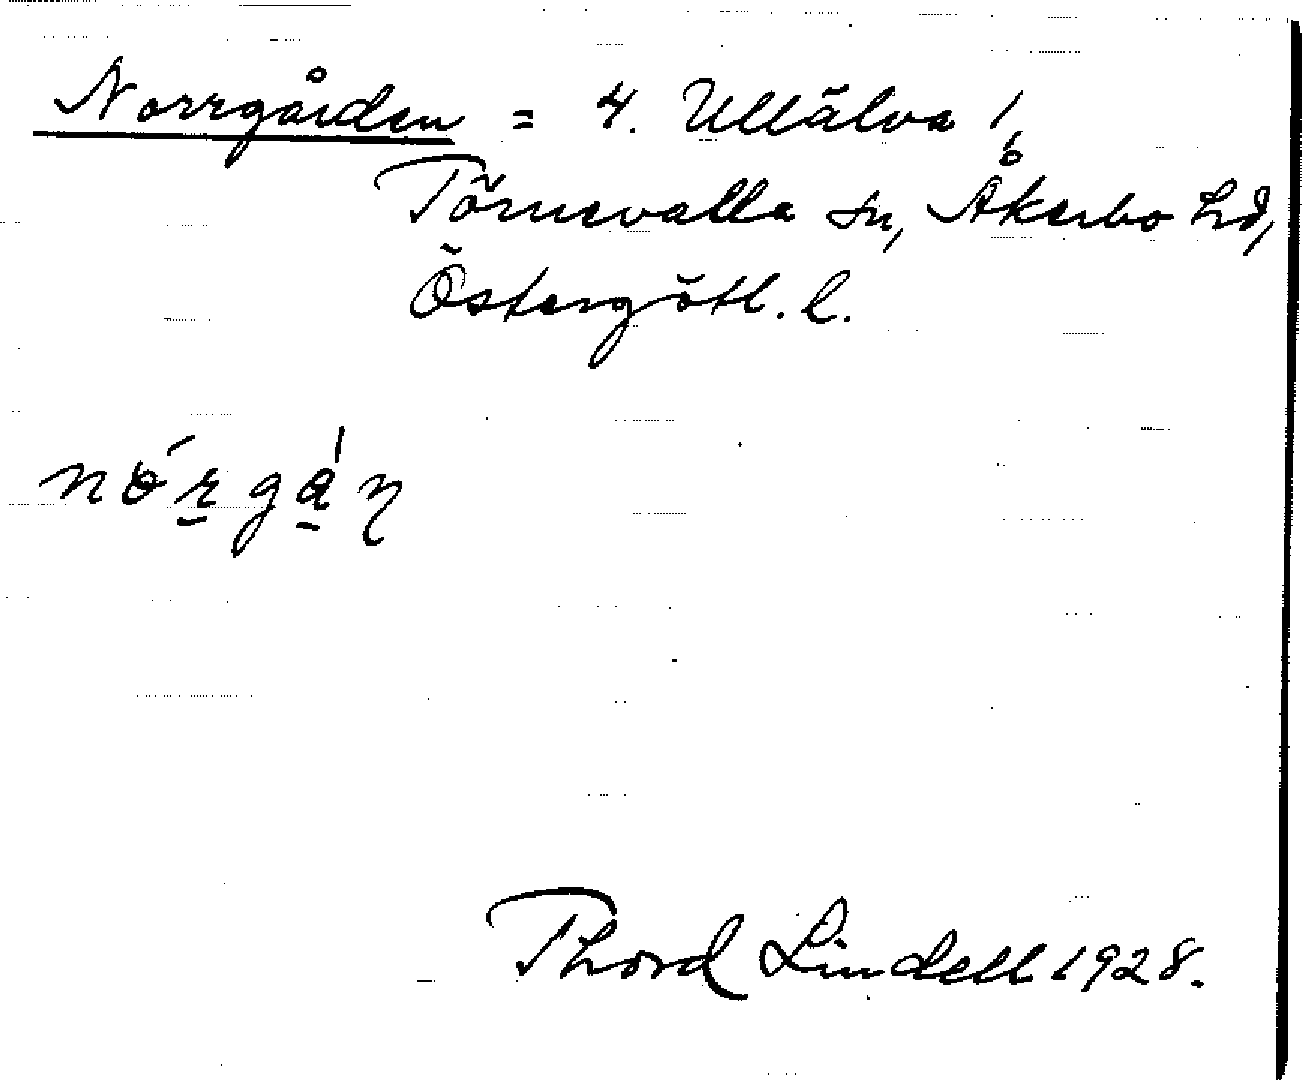 Norrgården = 4. Ullälva 1/6
Törnevalla sn, Åkerbo hd,
Östergötl. l.
nórgán
Thord Lindell 1928.